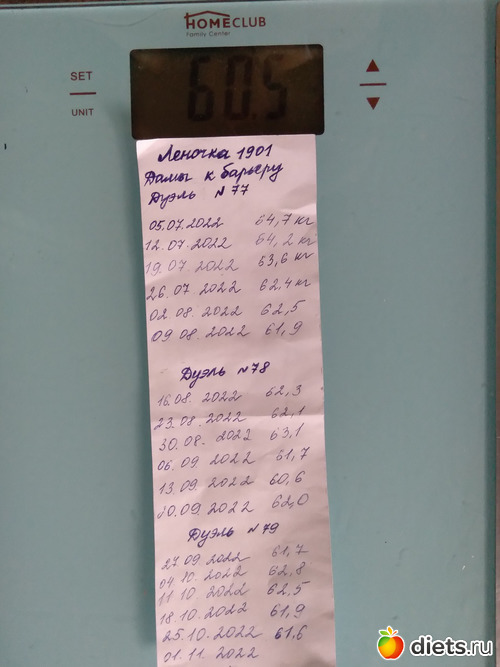 HOMECLUB
Family Center
SET
UNIT
60.5
Леночка 1901
Дамы к барьеру
Дуэль №77
05.07.2022 64,7 кг
12.07.2022 64,2 кг
19.07.2022 63,6 кг
26.07.2022 62,4 кг
02.08.2022 62,5
09.08.2022 61,9
Дуэль №78
16.08.2022 62,3
23.08.2022 62,1
30.08.2022 63,1
06.09.2022 61,7
13.09.2022 60,6
20.09.2022 62,0
Дуэль №79
27.09.2022 61,7
04.10.2022 62,8
11.10.2022 62,5
18.10.2022 61,9
25.10.2022 61,6
01.11.2022
diets.ru